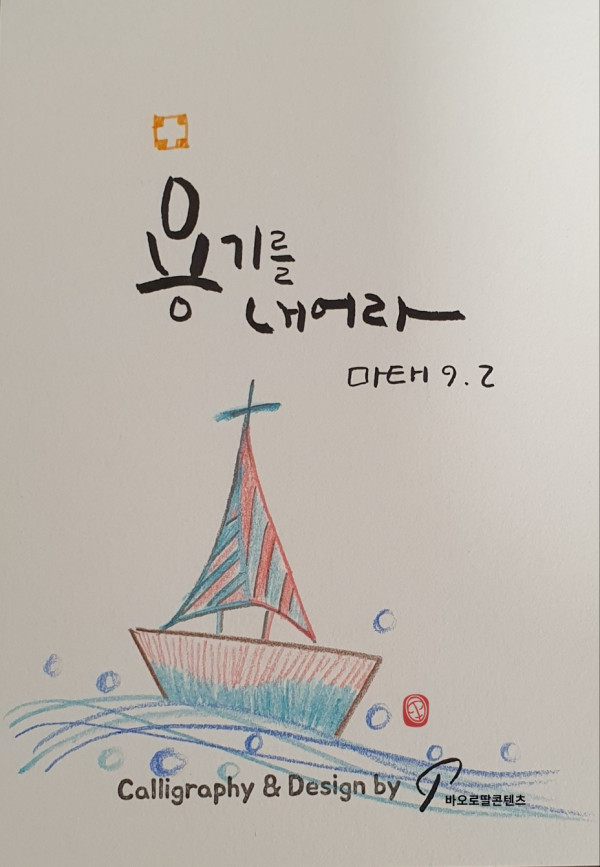 용기를
내어라
마태 9.2
Calligraphy & Design by
바오로딸콘텐츠